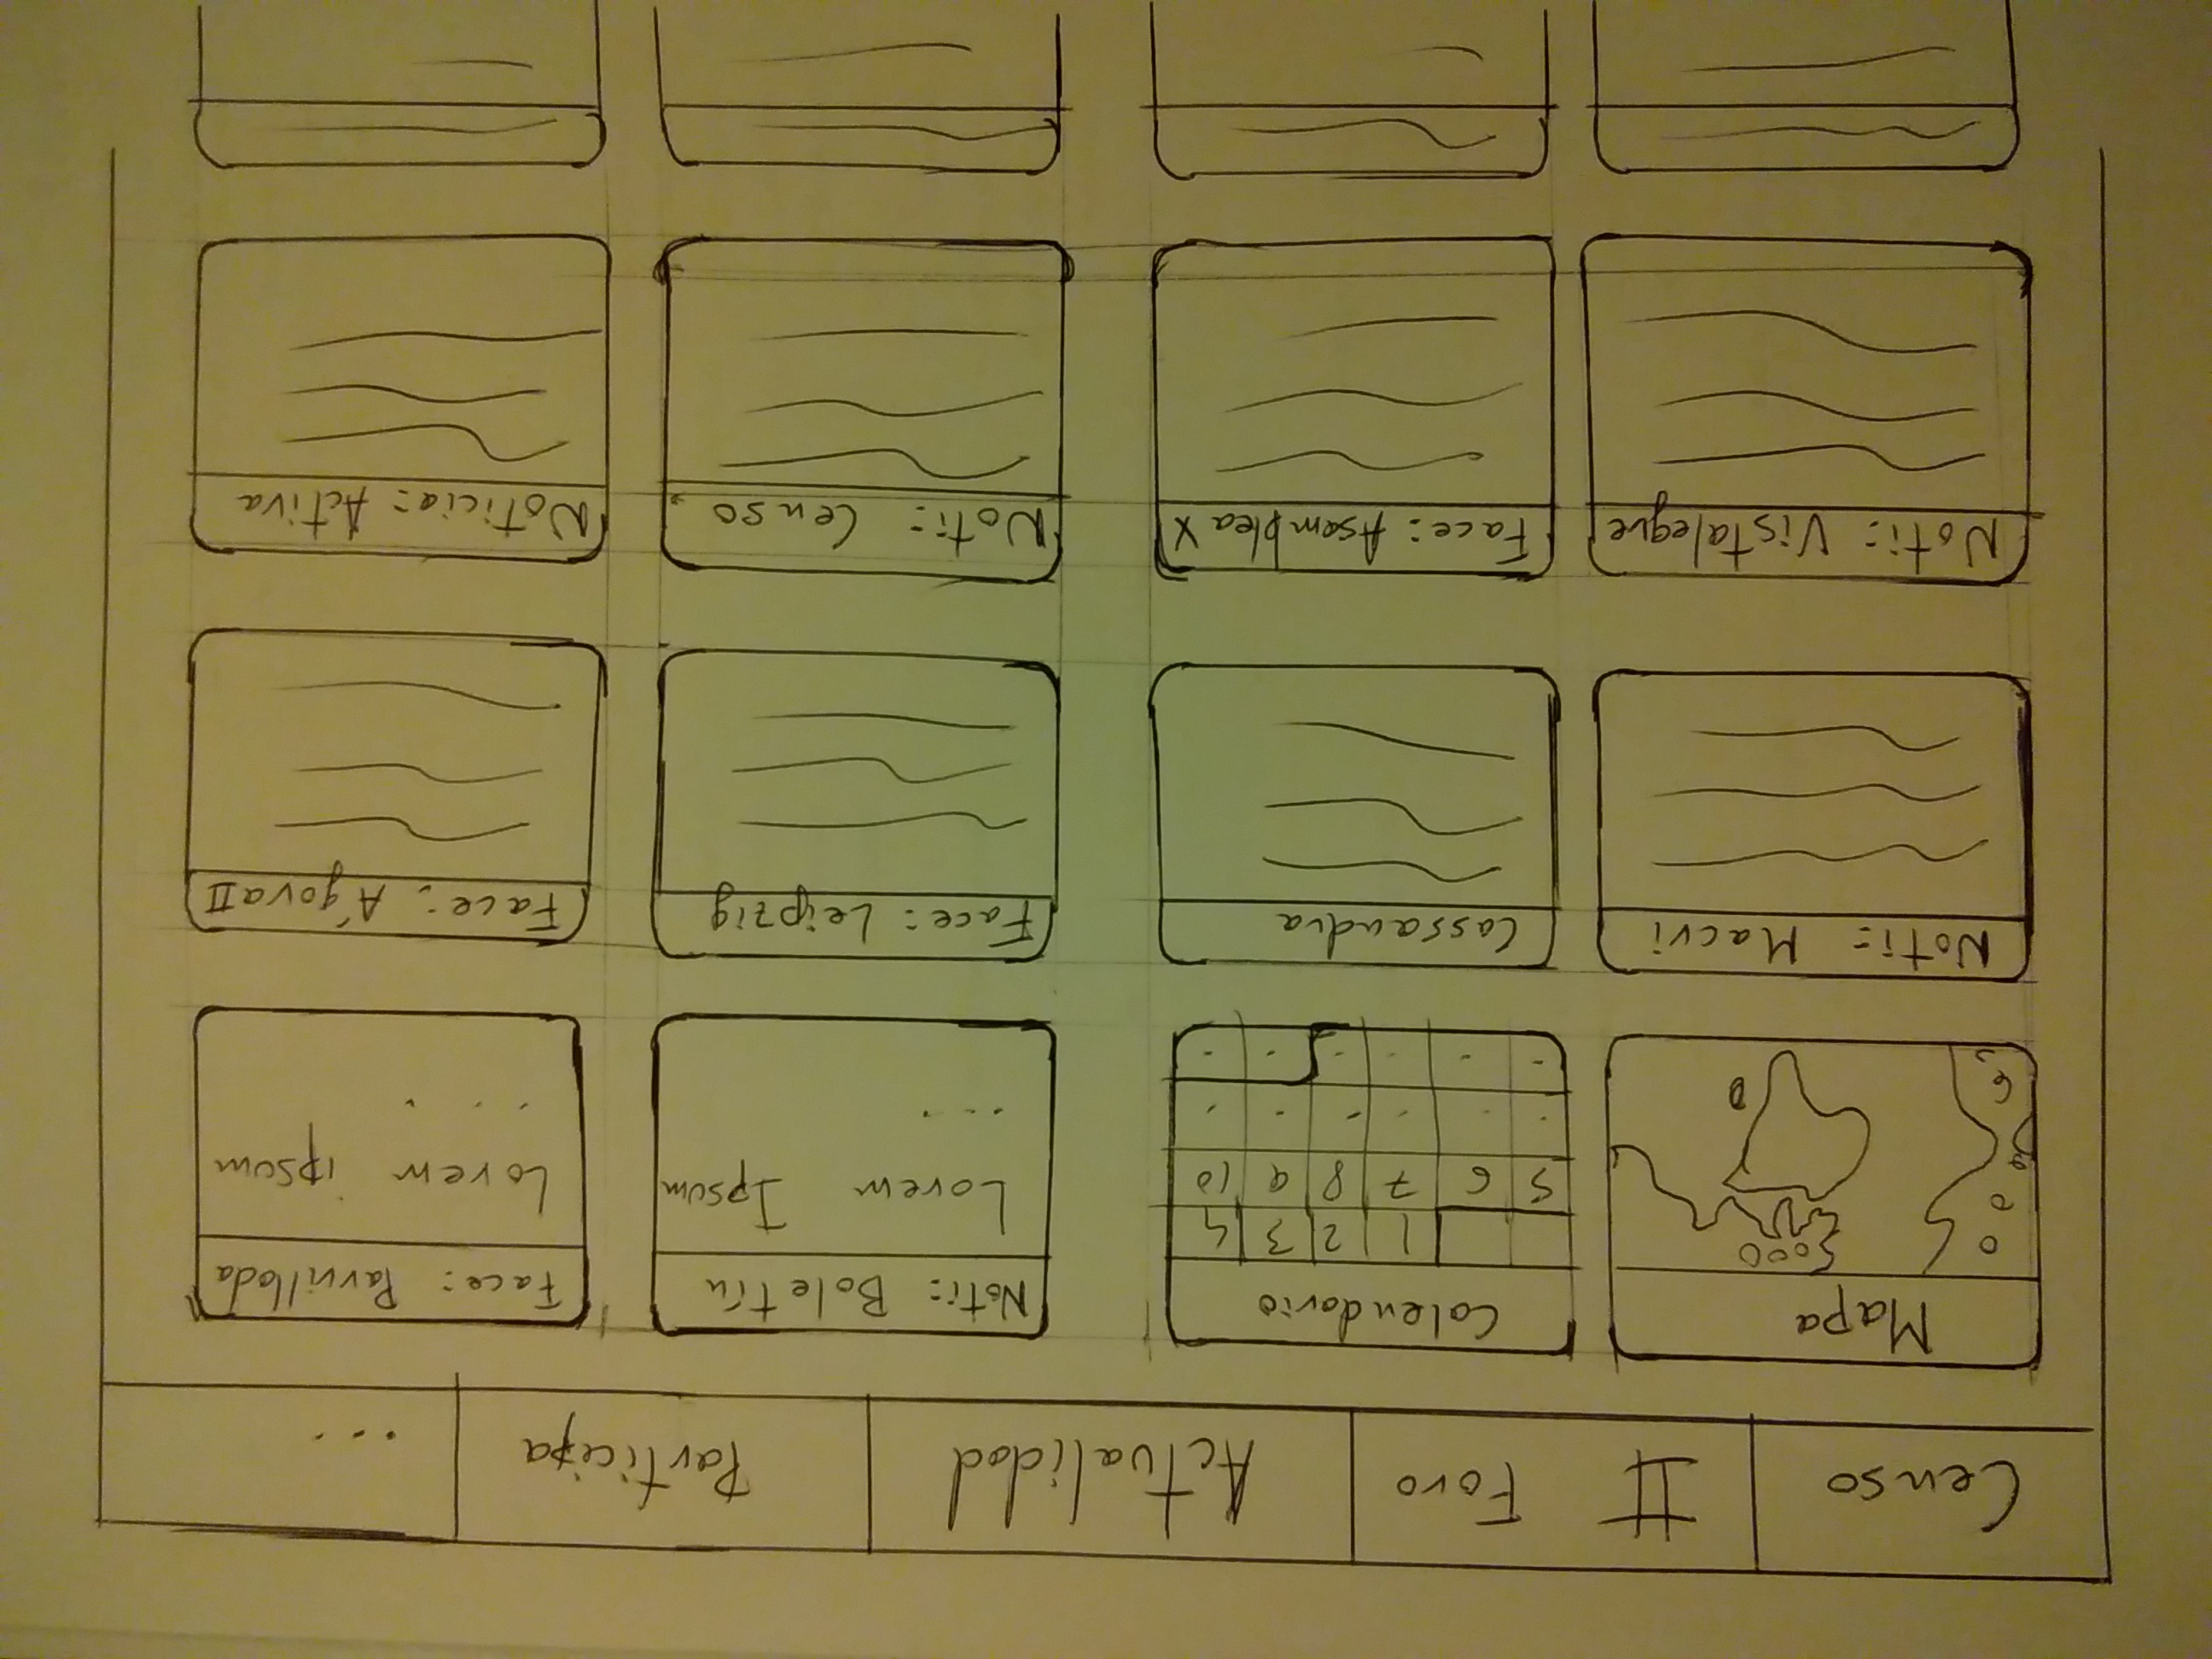 Censo
II Foro
Actualidad
Participa
...
Mapa
Calendario
1 2 3 4
5 6 7 8 9 10
- - - - - -
- - - - - -
Noti: Boletín
Lorem Ipsum
...
Face: Parrillada
Lorem ipsum
...
Noti: Macri
Cassandra
Face: Leipzig
Face: Ágora II
Noti: Vistalegre
Face: Asamblea X
Noti: Censo
Noticia: Activa